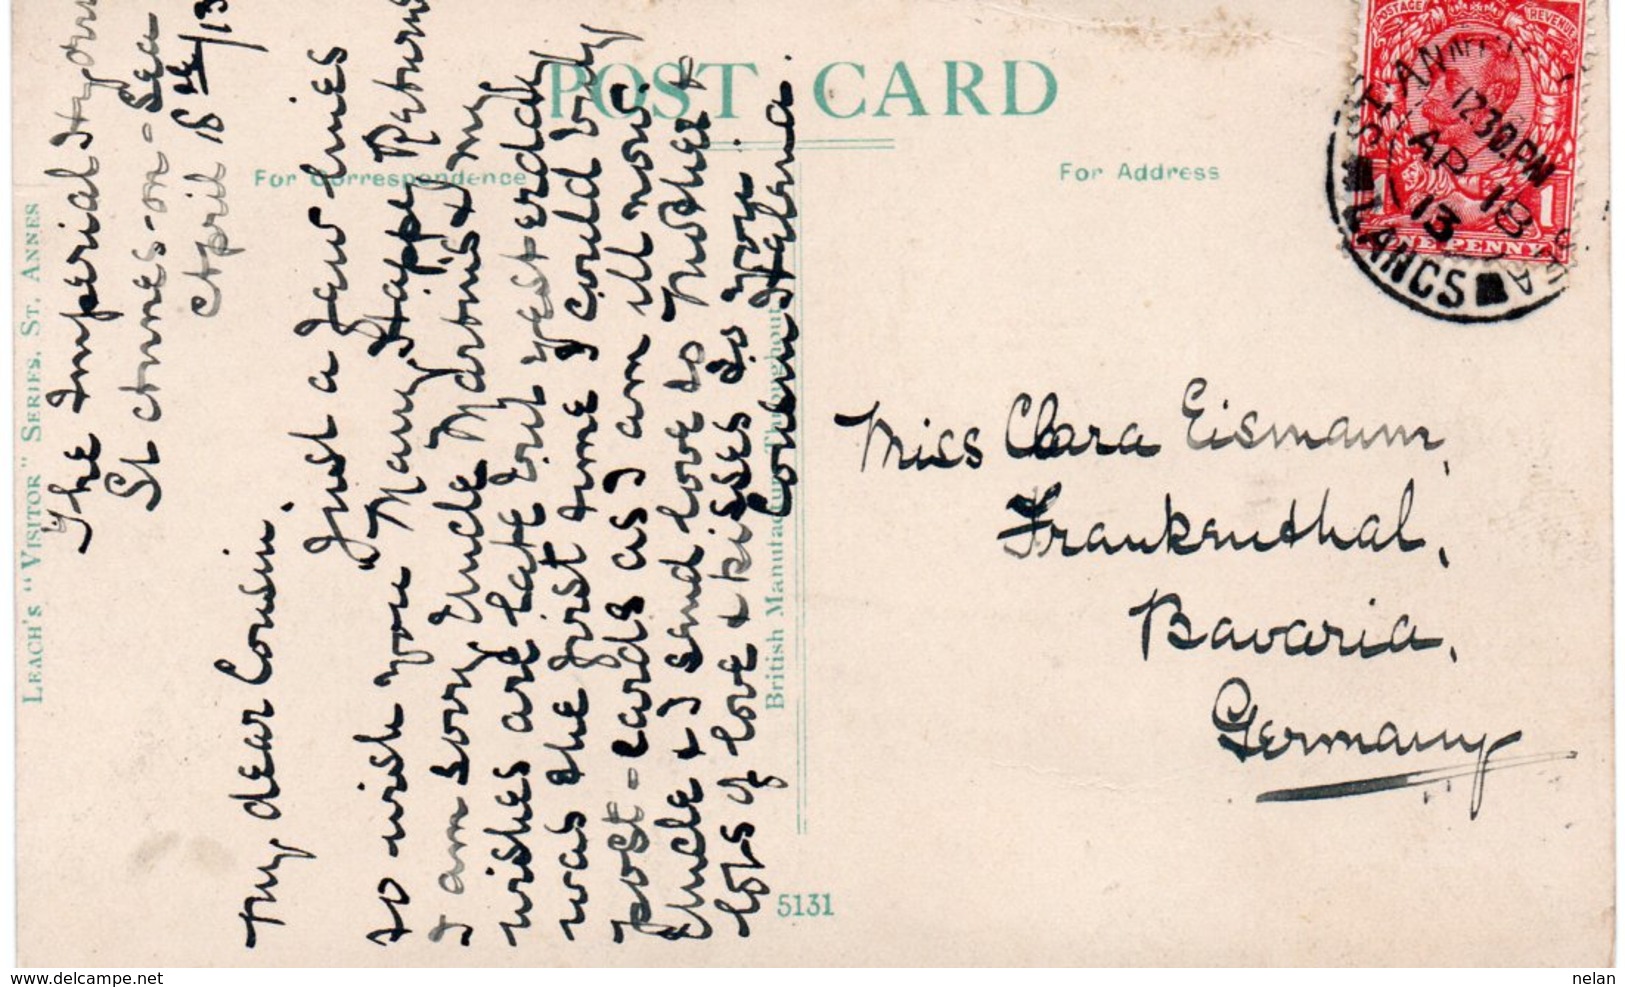 POST CARD
For Correspondence
For Address
LEACH'S "VISITOR" SERIES, ST. ANNES
British Manufacture Throughout
5131
The Imperial Hydro
St Annes-on-Sea
April 18th/13
My dear Cousin,
Just a few lines
to wish you "Many Happy Returns"
I am sorry Uncle Martin's & my
wishes are late but yesterday
was the first time I could buy
post-cards as I am ill now.
Uncle & I send love to Mother &
lots of love & kisses to you
Cousin Helena.
Miss Clara Eismann,
Frankenthal,
Bavaria,
Germany
POSTAGE
REVENUE
ONE PENNY
1
1
ST ANNES ON SEA
12.30 PM
AP 18
13
LANCS
delcampe.net
nelan